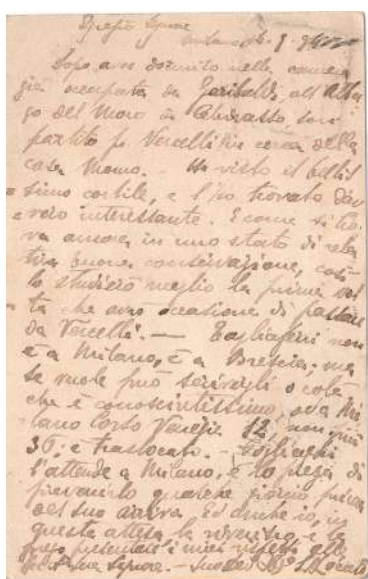 Egregio Signore
Milano
Dopo aver dormito nella camera
già occupata da Garibaldi all'Alber
go del Moro a Cherasco sono
partito per Vercelli in cerca della
casa Momo. - Ho visto il bellis
simo cortile, e l'ho trovato dav
vero interessante. E come si tro
va ancora in uno stato di rela
tiva buona conservazione, così
lo studierò meglio la prima vol
ta che avrò occasione di passare
da Vercelli. - Tagliaferri non
è a Milano, è a Brescia; ma
se vuole può scrivergli o colà
che è conosciutissimo, o a Mi
lano Corso Venezia 12, non più
36; è traslocato. -
l'attende a Milano, e lo prega di
prevenirlo qualche giorno prima
del suo arrivo. Ed anch'io, in
questa attesa, la riverisco, e la
prego presentare i miei rispetti alle
sue signore. - Suo dev.